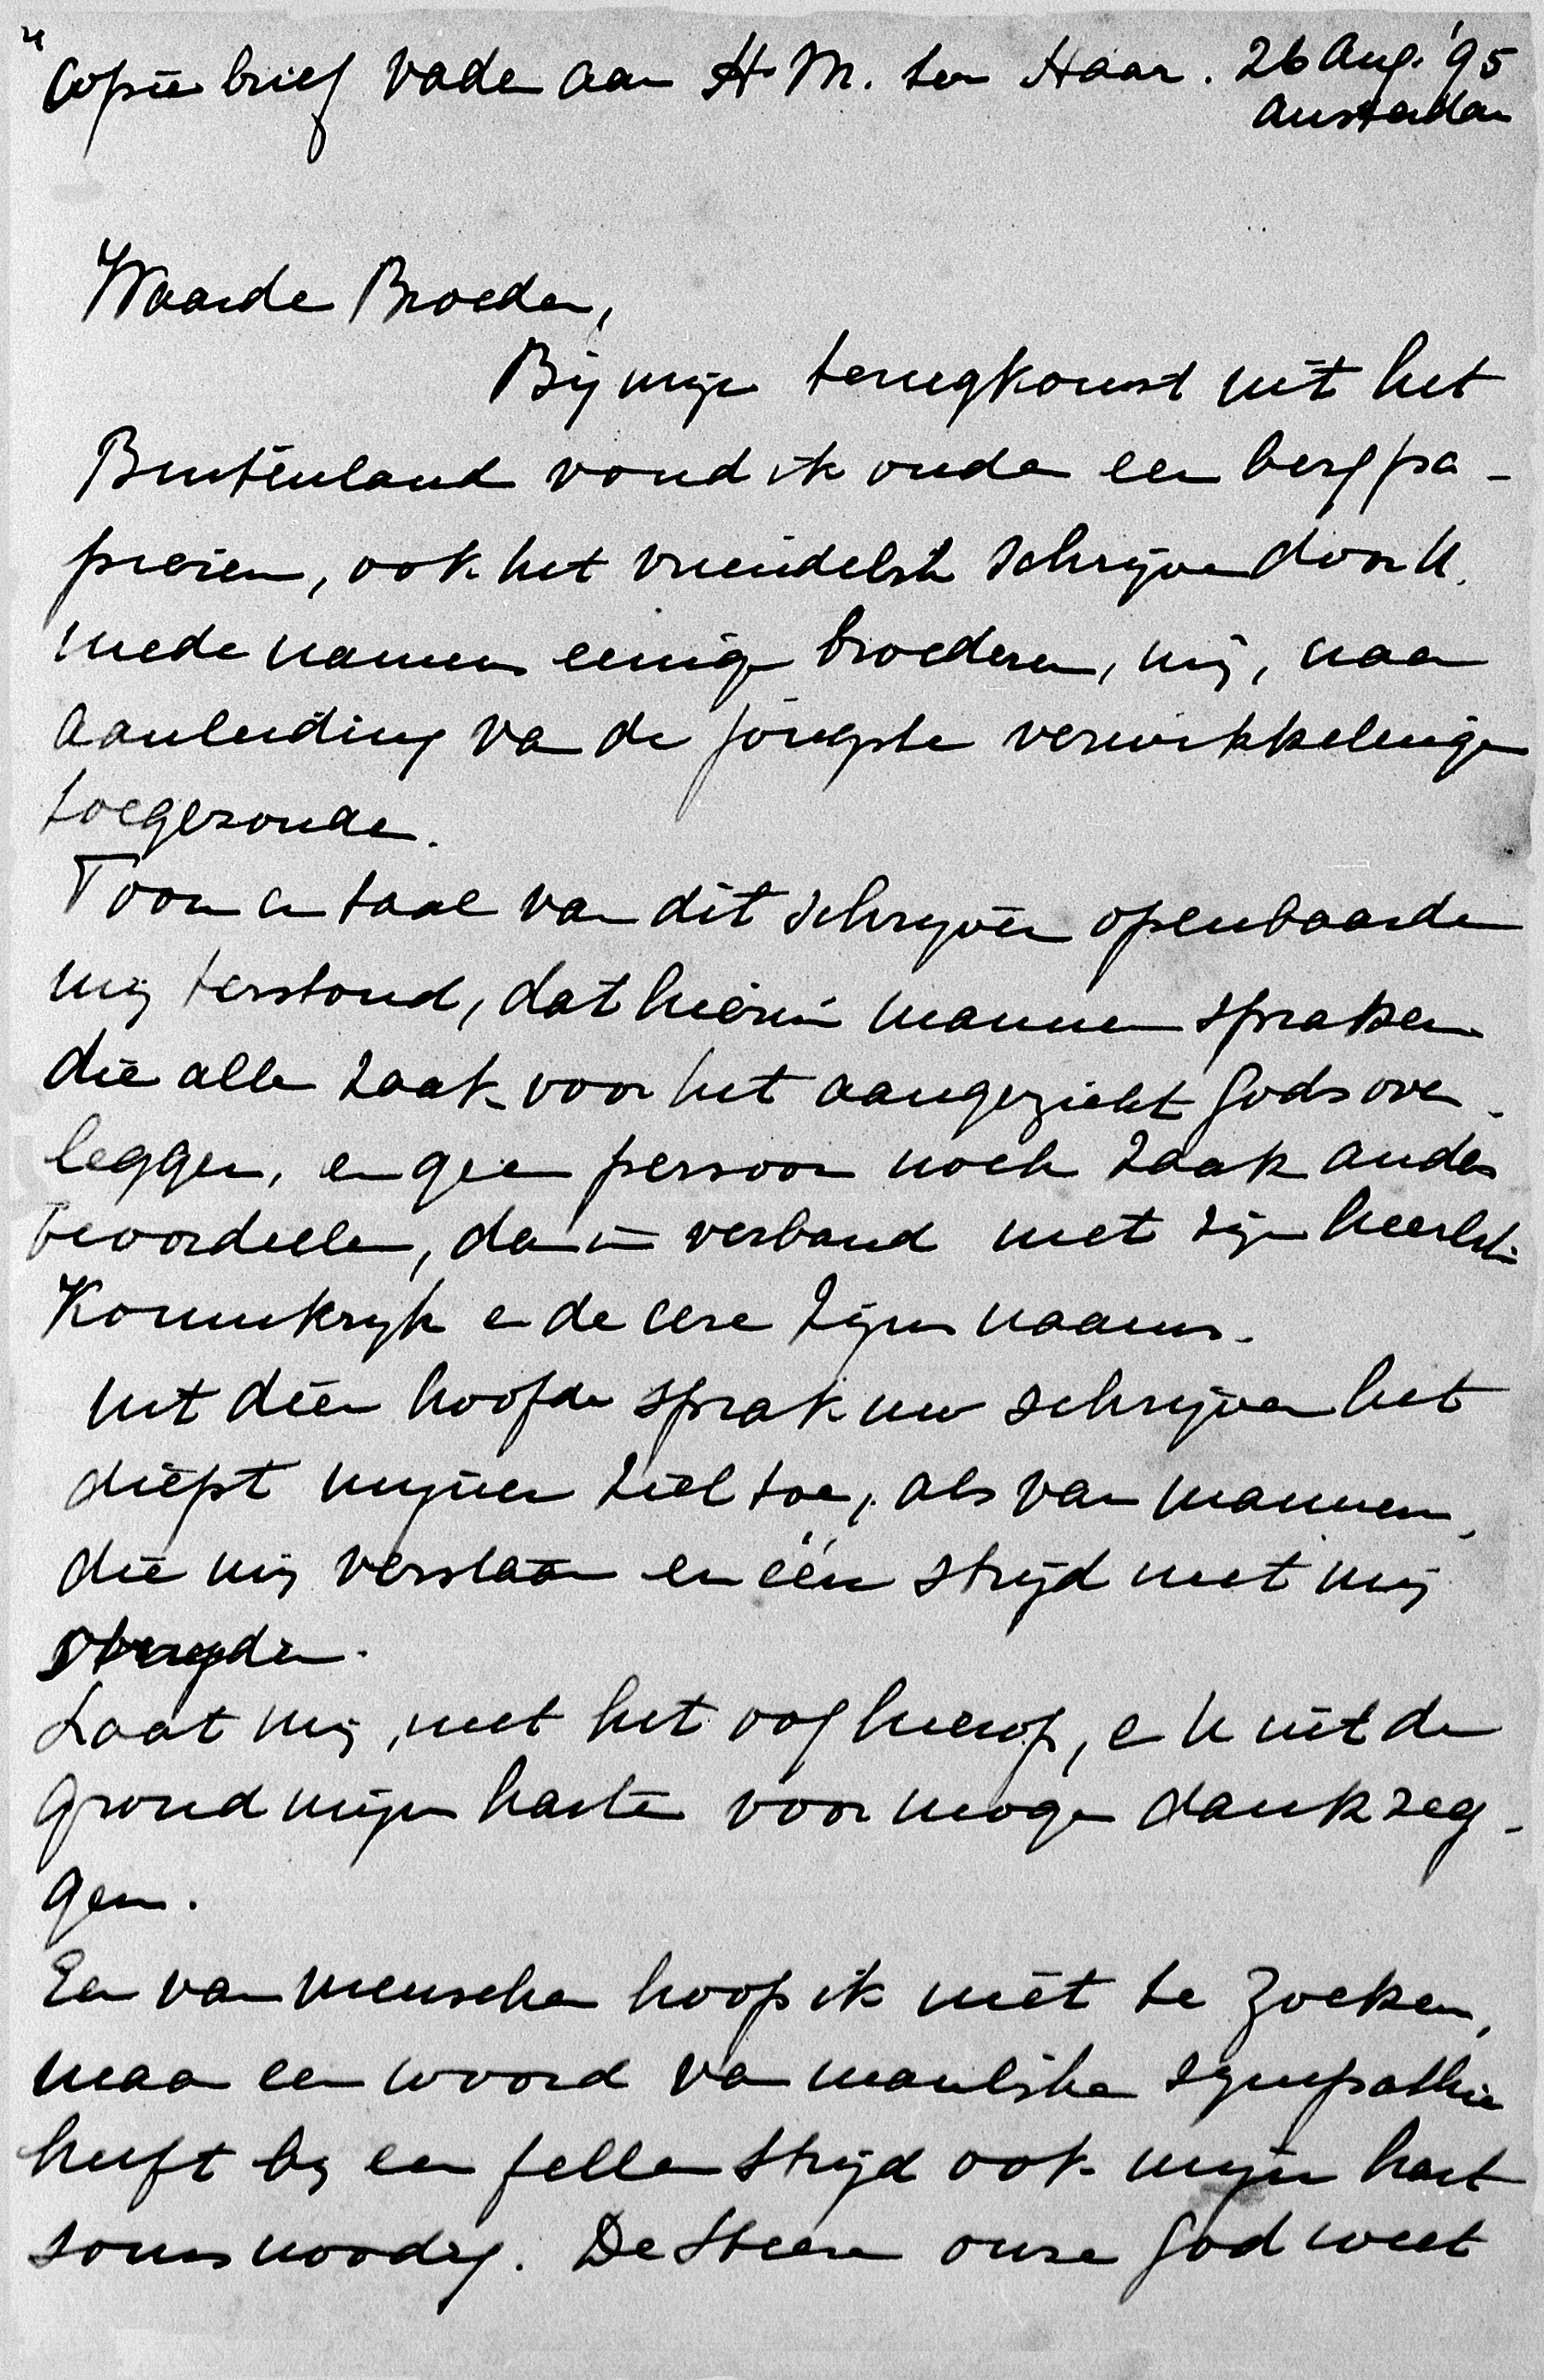 "Copie brief vader aan H. M. ter Haar. 26 Aug. '95
Amsterdam
Waarde Broeder,
Bij mijn terugkomst uit het
Buitenland vond ik onder een berg pa-
pieren, ook het vriendelijk schrijven door U.
mede namens eenige broederen, mij, naar
aanleiding van de jongste verwikkelingen
toegezonden.
Toon en taal van dit schrijven openbaarden
mij terstond, dat hierin mannen spraken
die alle zaak voor het aangezicht Gods over-
leggen, en geen persoon noch zaak anders
beoordeelen, dan in verband met zijn heerlijk
Koninkrijk en de eere Zijns naams.
Uit dien hoofde sprak uw schrijven het
diepst mijner ziel toe, als van mannen,
die mij verstaan en één strijd met mij
strijden.
Laat mij, met het oog hierop, er U uit den
grond mijns harten voor mogen dank zeg-
gen.
Eer van menschen hoop ik niet te zoeken,
maar een woord van manlijke sympathie
heeft bij een fellen strijd ook mijn hart
soms noodig. De Heere onze God weet